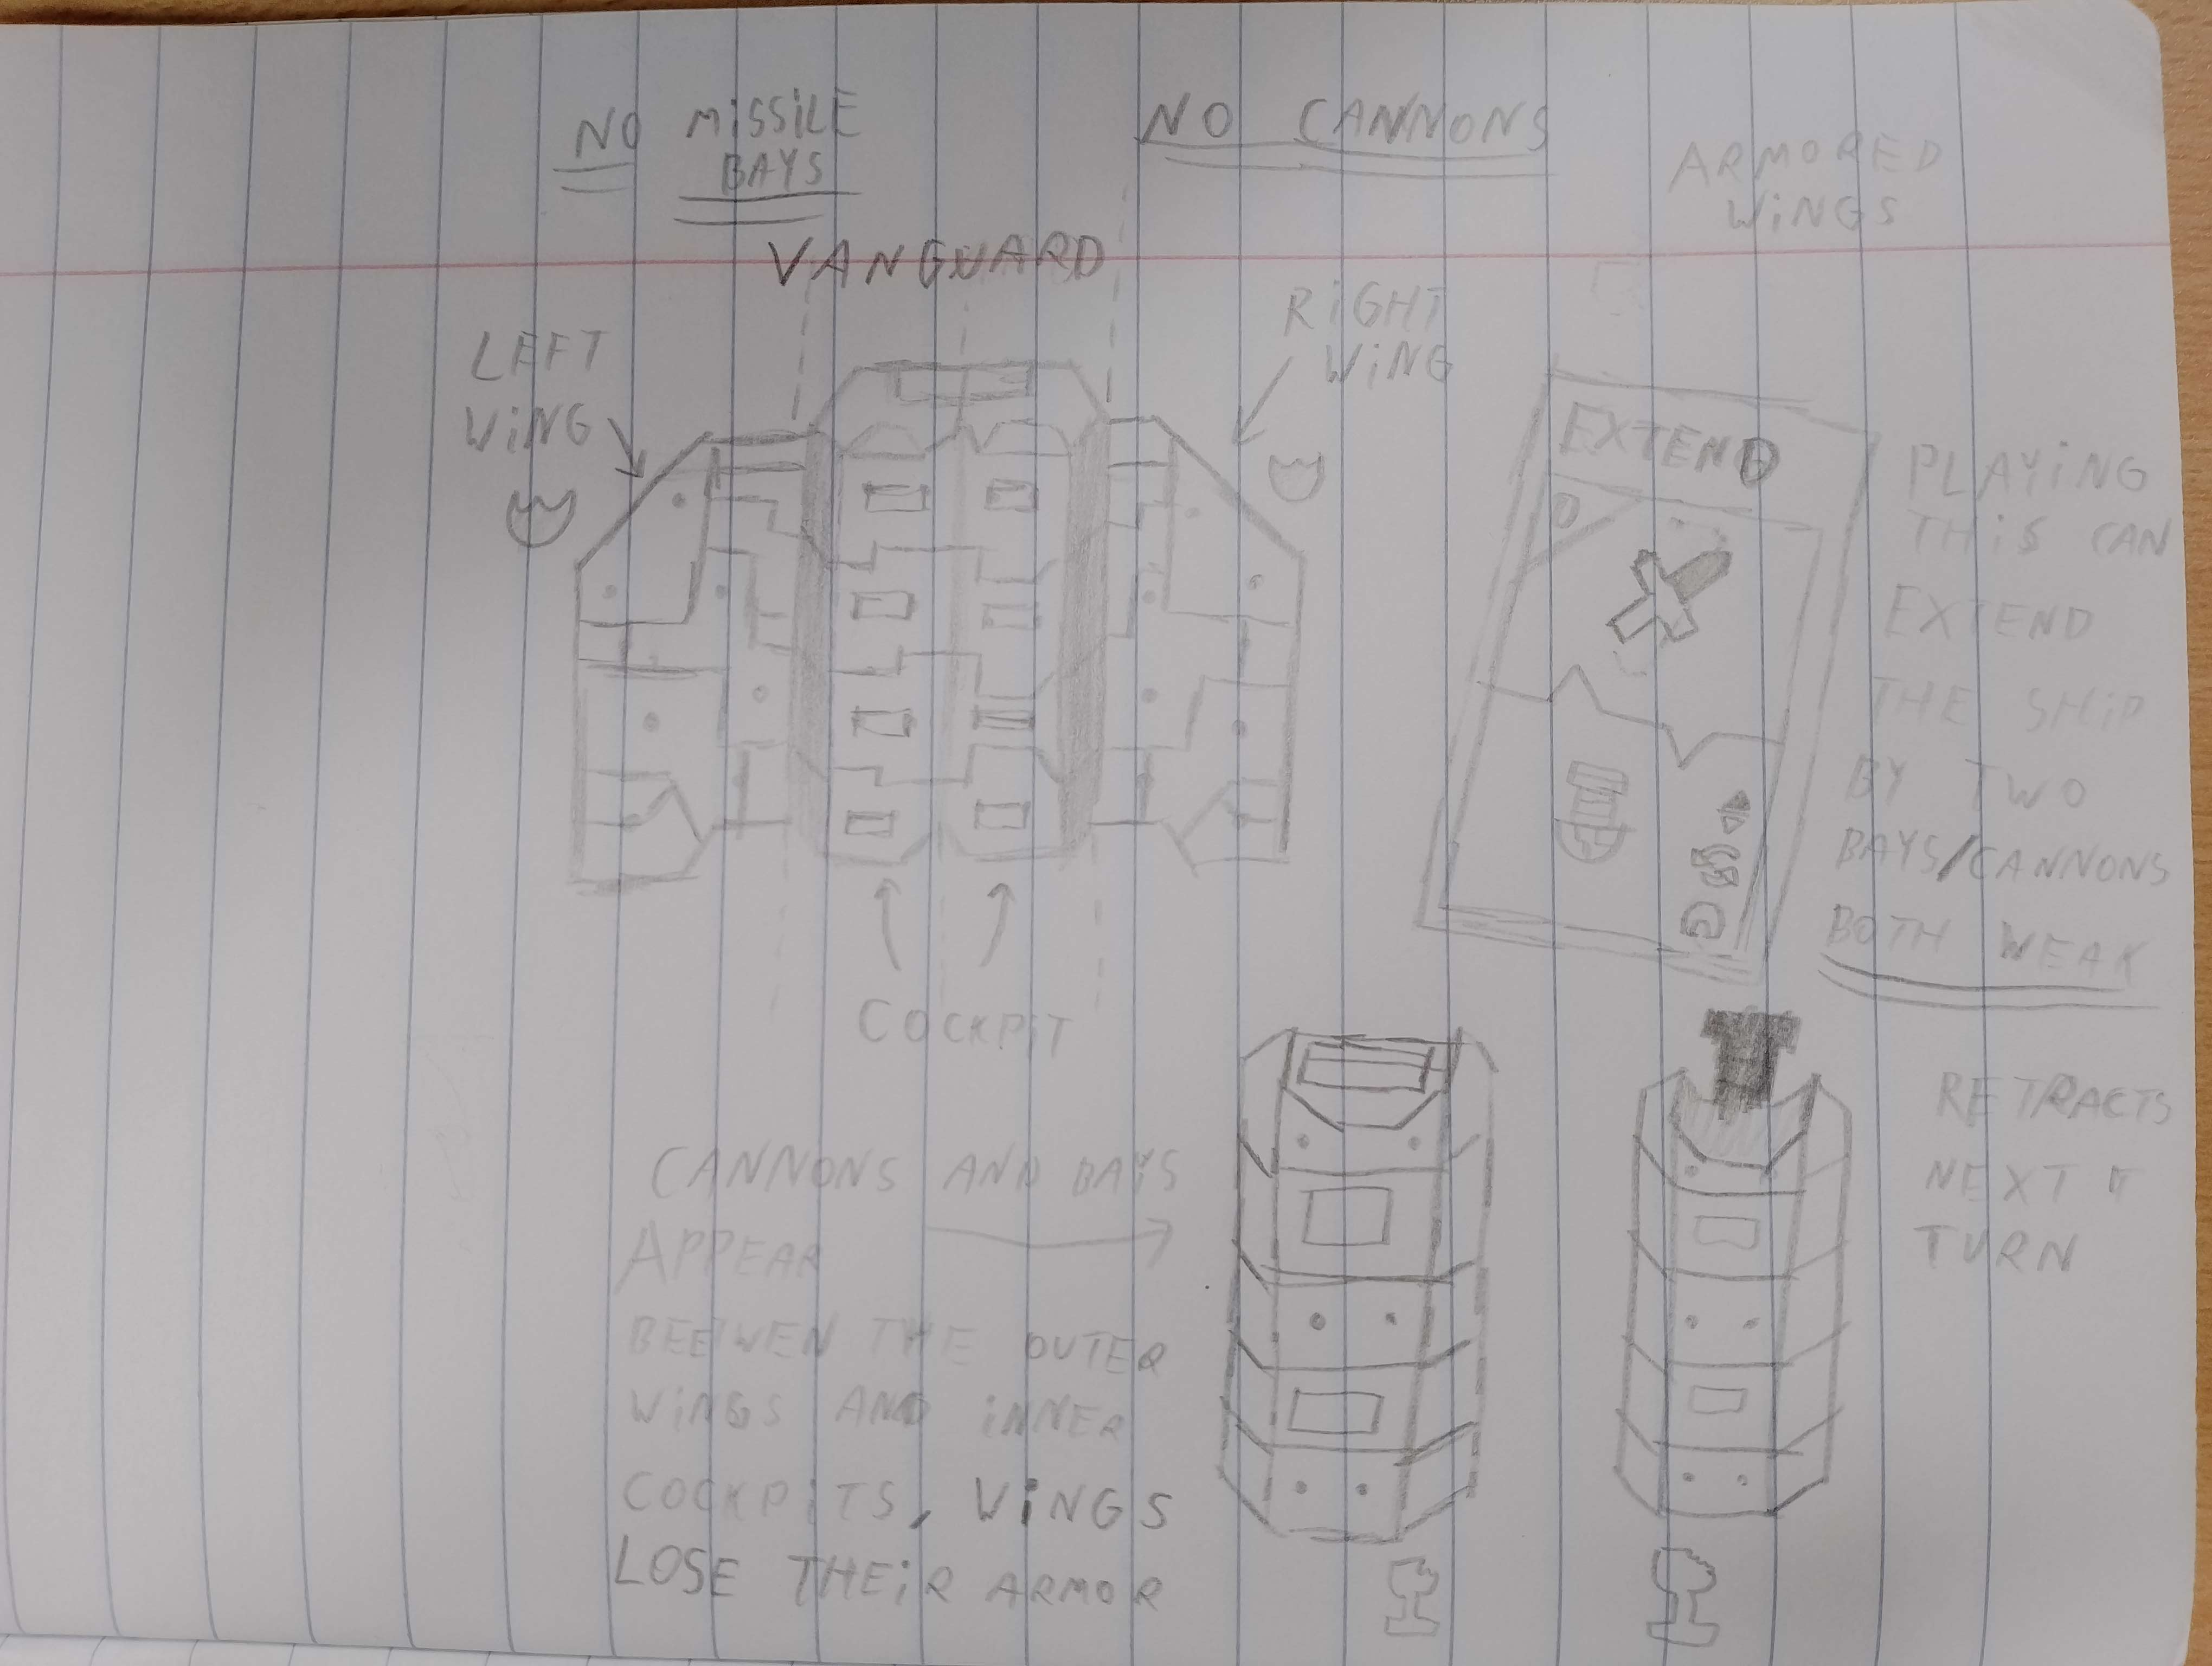 NO MISSILE
BAYS
NO CANNONS
ARMORED
WINGS
VANGUARD
LEFT
WING
RIGHT
WING
EXTEND
0
PLAYING
THIS CAN
EXTEND
THE SHIP
BY TWO
BAYS/CANNONS
BOTH WEAK
COCKPIT
RETRACTS
NEXT
TURN
CANNONS AND BAYS
APPEAR
BEEWEN THE OUTER
WINGS AND INNER
COCKPITS, WINGS
LOSE THEIR ARMOR